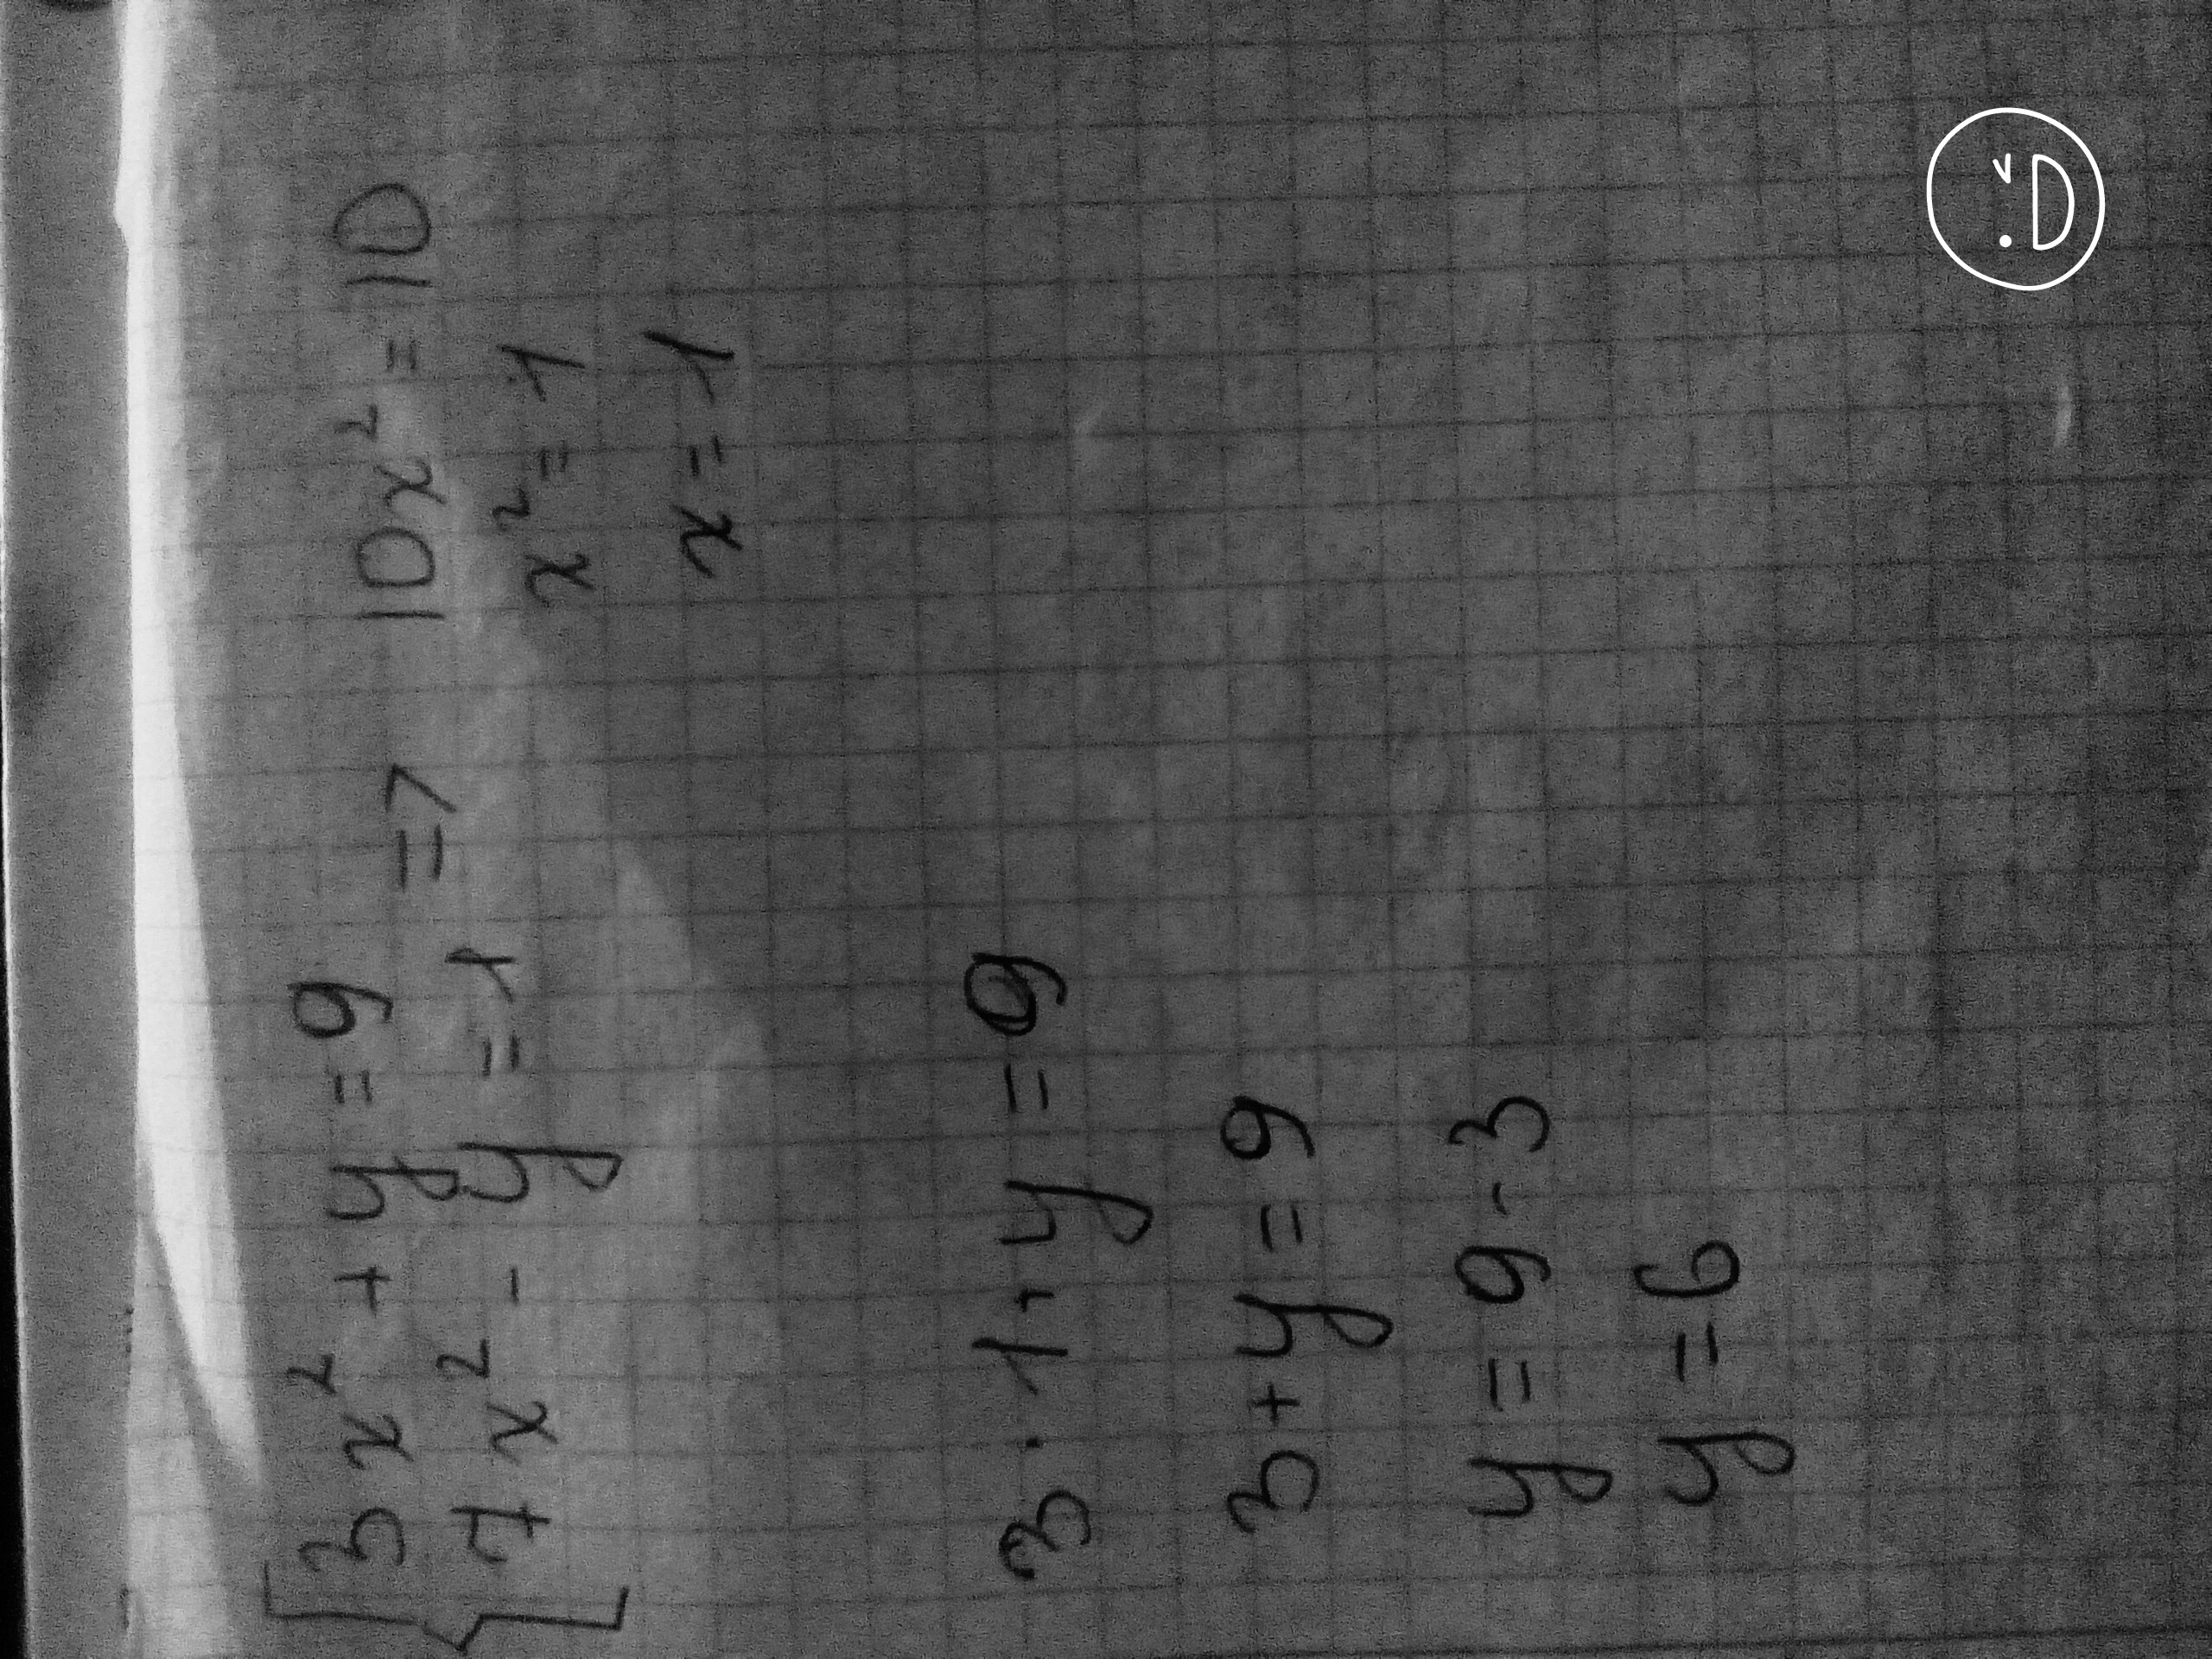 3x² + y = 9
7x² - y = 1
=> 10x² = 10
x² = 1
x = 1
3 · 1 + y = 9
3 + y = 9
y = 9 - 3
y = 6